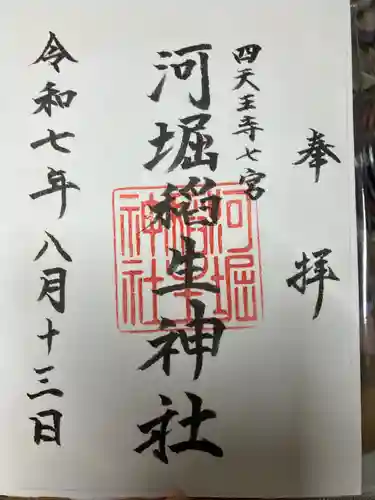 奉拝
四天王寺七宮
河堀稲生神社
令和七年八月十三日
河堀
稲生
神社